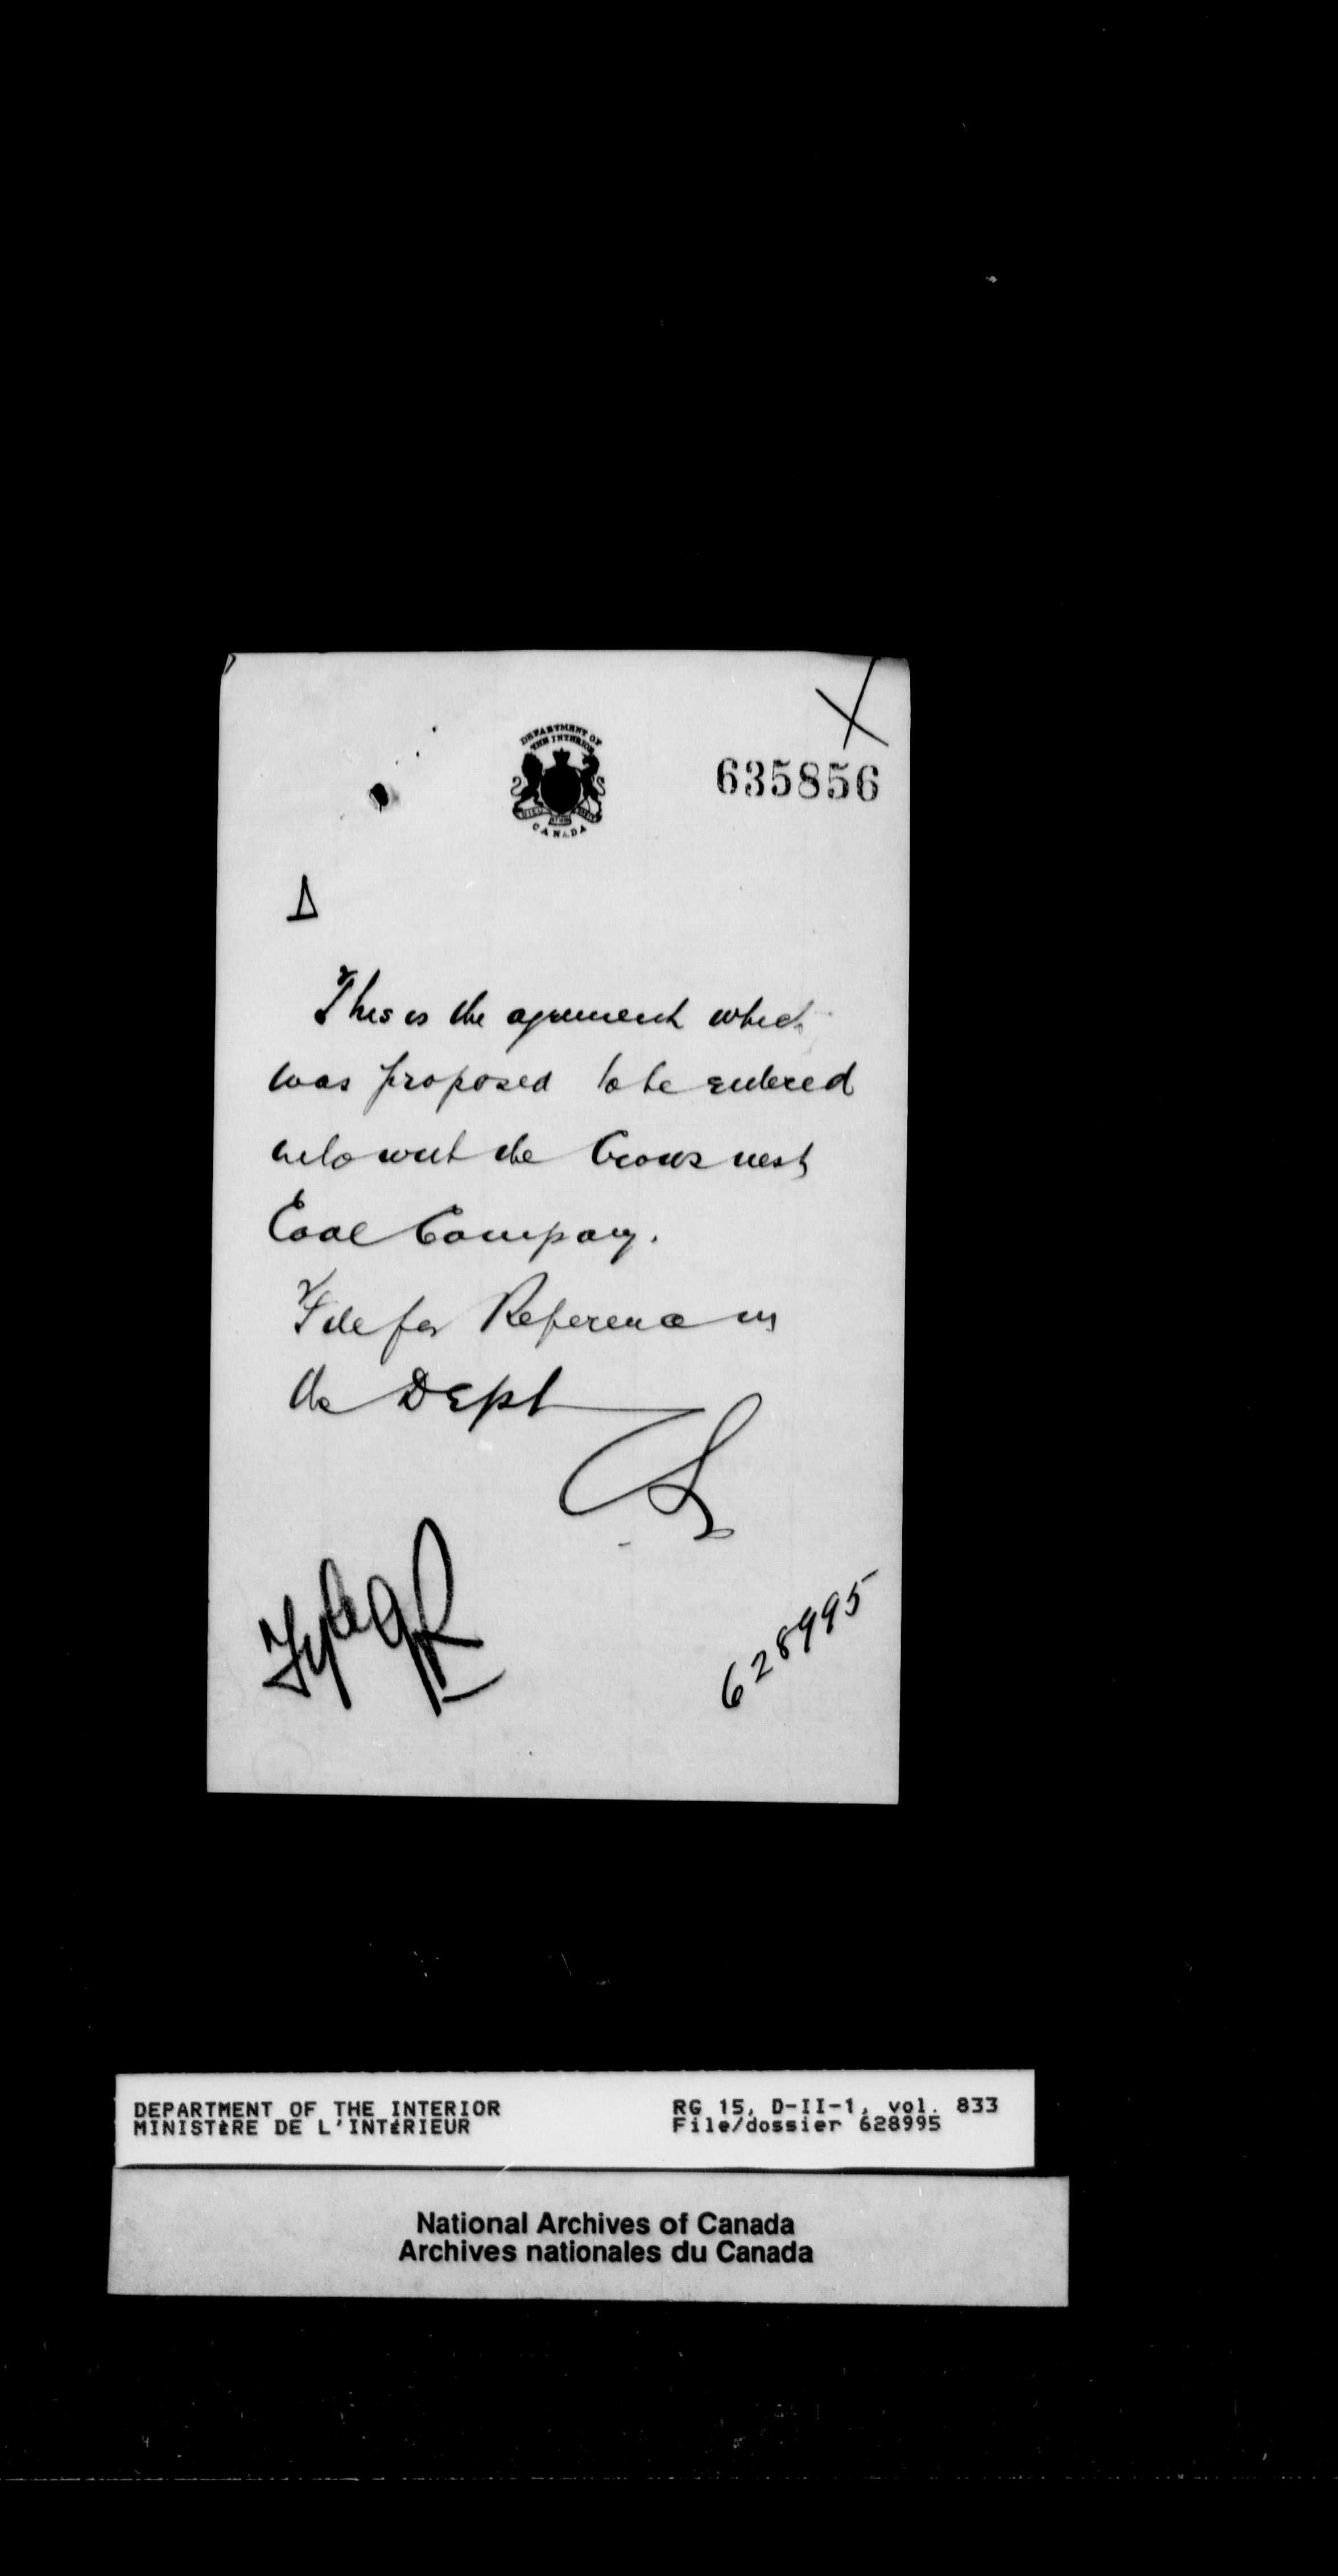 DEPARTMENT OF
THE INTERIOR
CANADA
635856
This is the agreement which
was proposed to be entered
into with the Crows nest
Coal Company.
File for Reference in
the Dept
628995
DEPARTMENT OF THE INTERIOR
MINISTÈRE DE L'INTÉRIEUR
RG 15, D-II-1, vol. 833
File/dossier 628995
National Archives of Canada
Archives nationales du Canada